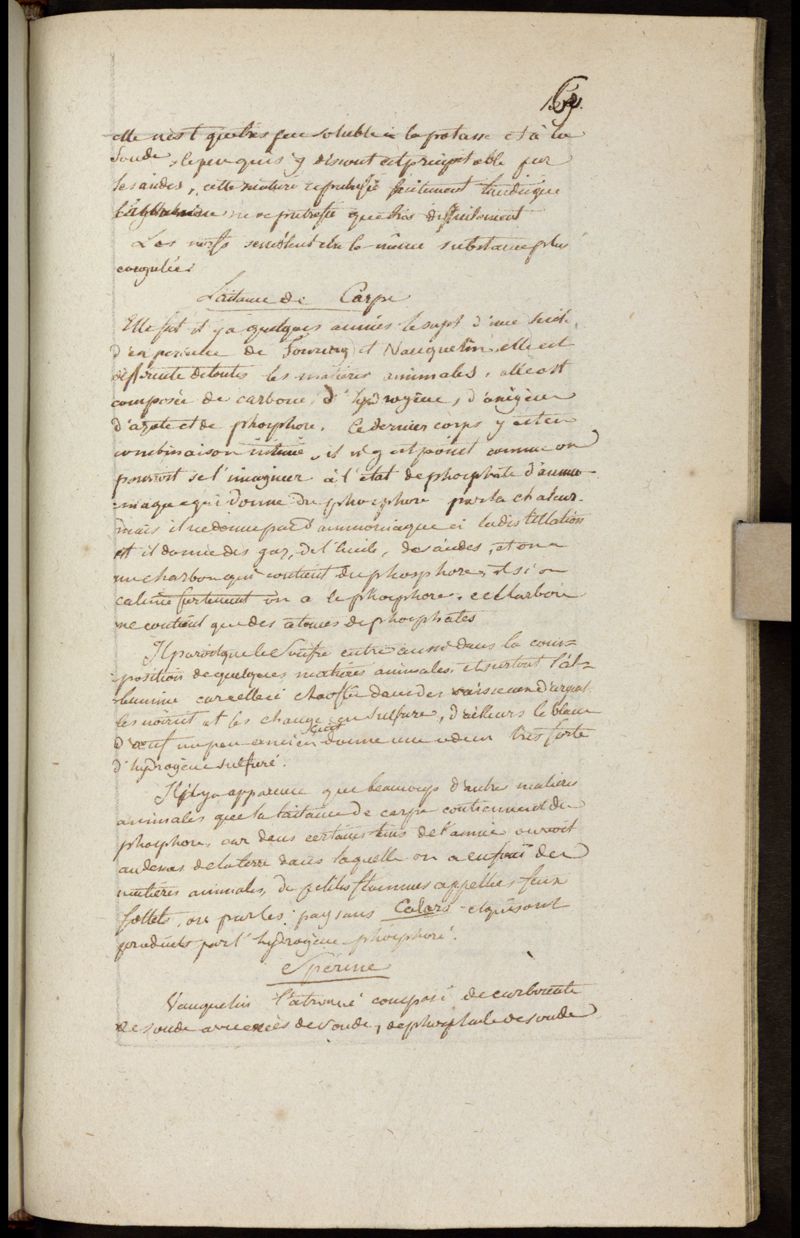 elle n'est que très peu soluble à la potasse et à la
soude, le peu qui s'y dissout est précipitable par
les acides, cette matière se putréfie facilement tandis que
ne se putréfie que très difficilement
Les nerfs semblent être la même substance plus
coagulée.
Laitance de Carpe
Elle fut il y a quelques années le sujet d'une suite
d'expérience de Fourcroy et Vauquelin, elle est
différente de toutes les matières animales, elle est
composée de carbone, d'hydrogène, d'oxigène
d'azote et de phosphore. Ce dernier corps y est en
combinaison intime, il n'y est point comme on
pourroit se l'imaginer à l'état de phosphate d'ammo-
niaque qui donne du phosphore par la chaleur
mais il ne donne pas d'ammoniaque à la distillation
et il donne des gaz, de l'huile, des acides, et on a
un charbon qui contient du phosphore, et si on
calcine fortement on a le phosphore. ce charbon
ne contient que des atomes de phosphates
Il paroit que le soufre entre aussi dans la com-
position de quelques matières animales et surtout l'al-
bumine car celle ci chauffée dans des vaisseaux d'argent
les noircit et les change en sulfure, d'ailleurs le blanc
d'œuf un peu ancien cuit donne une odeur très forte
d'hydrogène sulfuré.
Il y a apparence que beaucoup d'autre matières
animales que la laitance de carpe contiennent du
phosphore, car dans certains tems de l'année on voit
au dessus de la terre dans laquelle on a enfoui des
matières animales, de petites flammes appellées feux
follets, ou par les paysans Culars et qui sont
produits par l'hydrogène phosphoré.
Sperme
Vauquelin l'a trouvé composé de carbonate
de soude avec excès de soude, de phosphate de soude